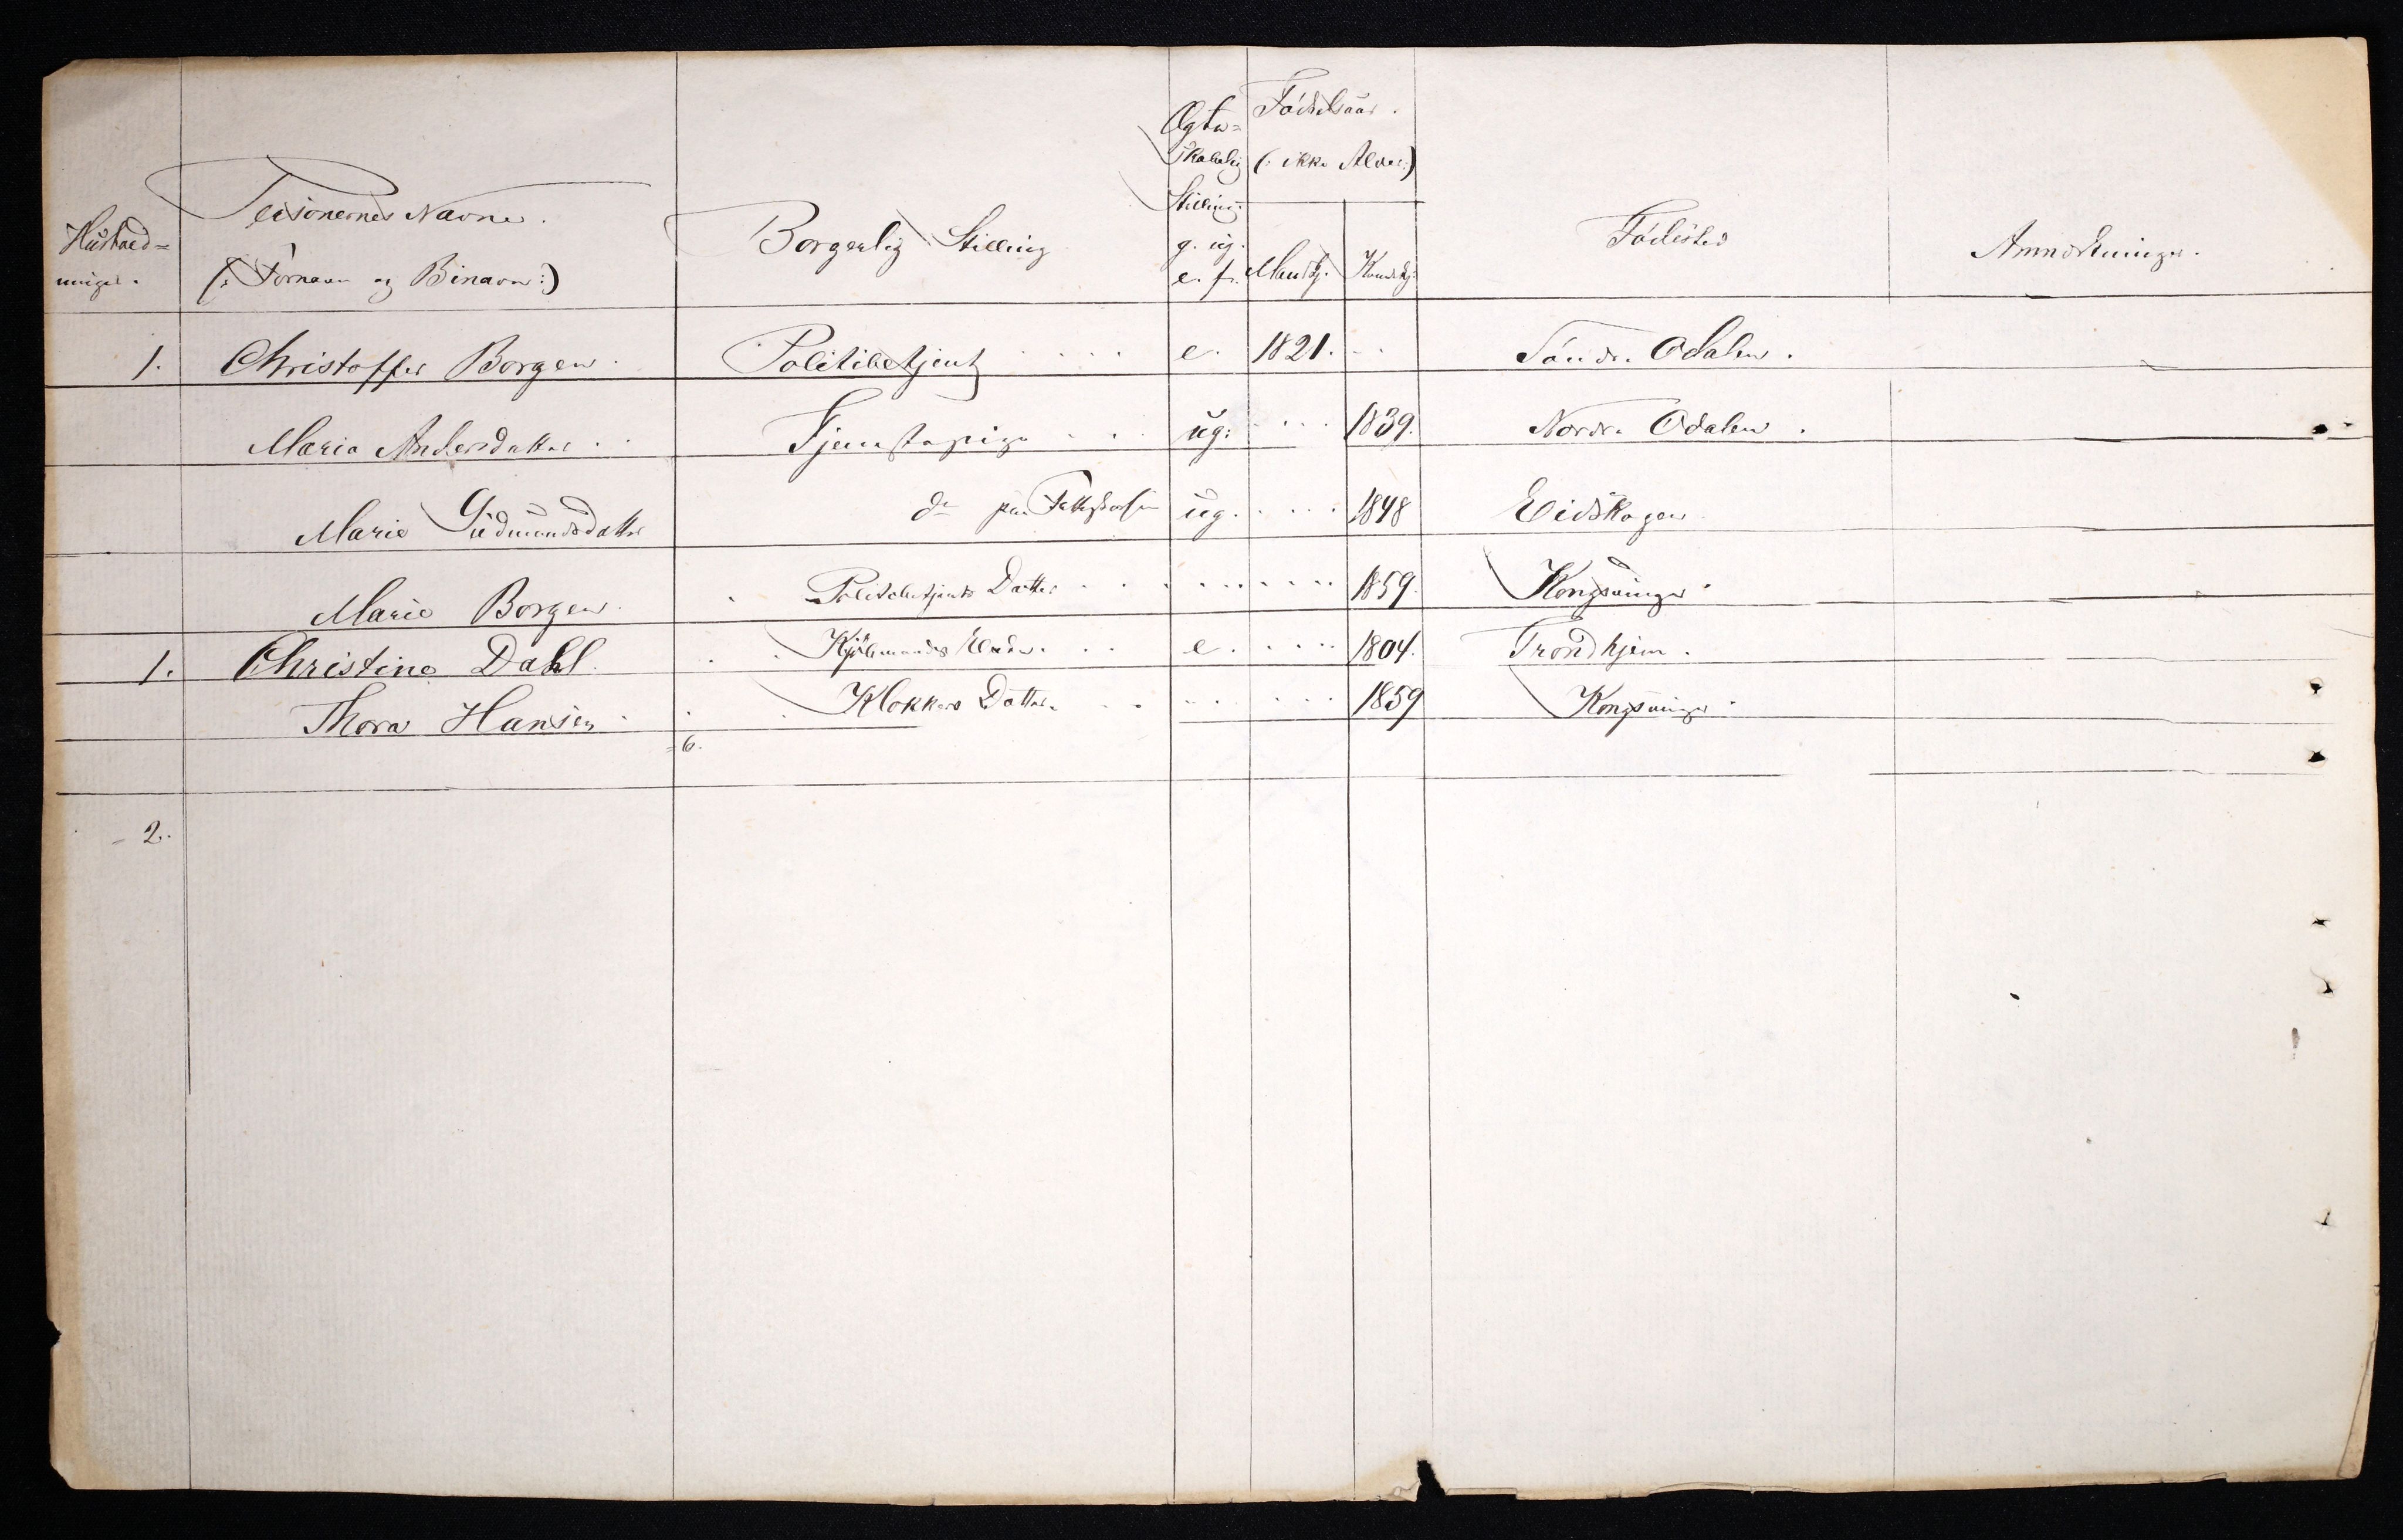 Husholdninger. Personernes Navne. (: Fornavn og Binavn:) Borgerlig Stilling Ægteskabelig Stilling. g. ug. e. f. Födselsaar. (: ikke Alder:) Mandkj. Kvindekj. Födested Anmærkninger.
1. Christoffer Borgen. Politibetjent e. 1821. Söndre Odalen.
Maria Andersdatter Tjenestepige ug. 1839. Nordre Odalen.
Marie Gudmundsdatter do ug. 1848 Eidskogen
Marie Borgen. Politibetjents Datter 1859. Kongsvinger
1. Christine Dahl. Kjöbmands Enke e. 1804. Trondhjem.
Thora Hansen Klokkers Datter 1859 Kongsvinger
= 6.
= 2.